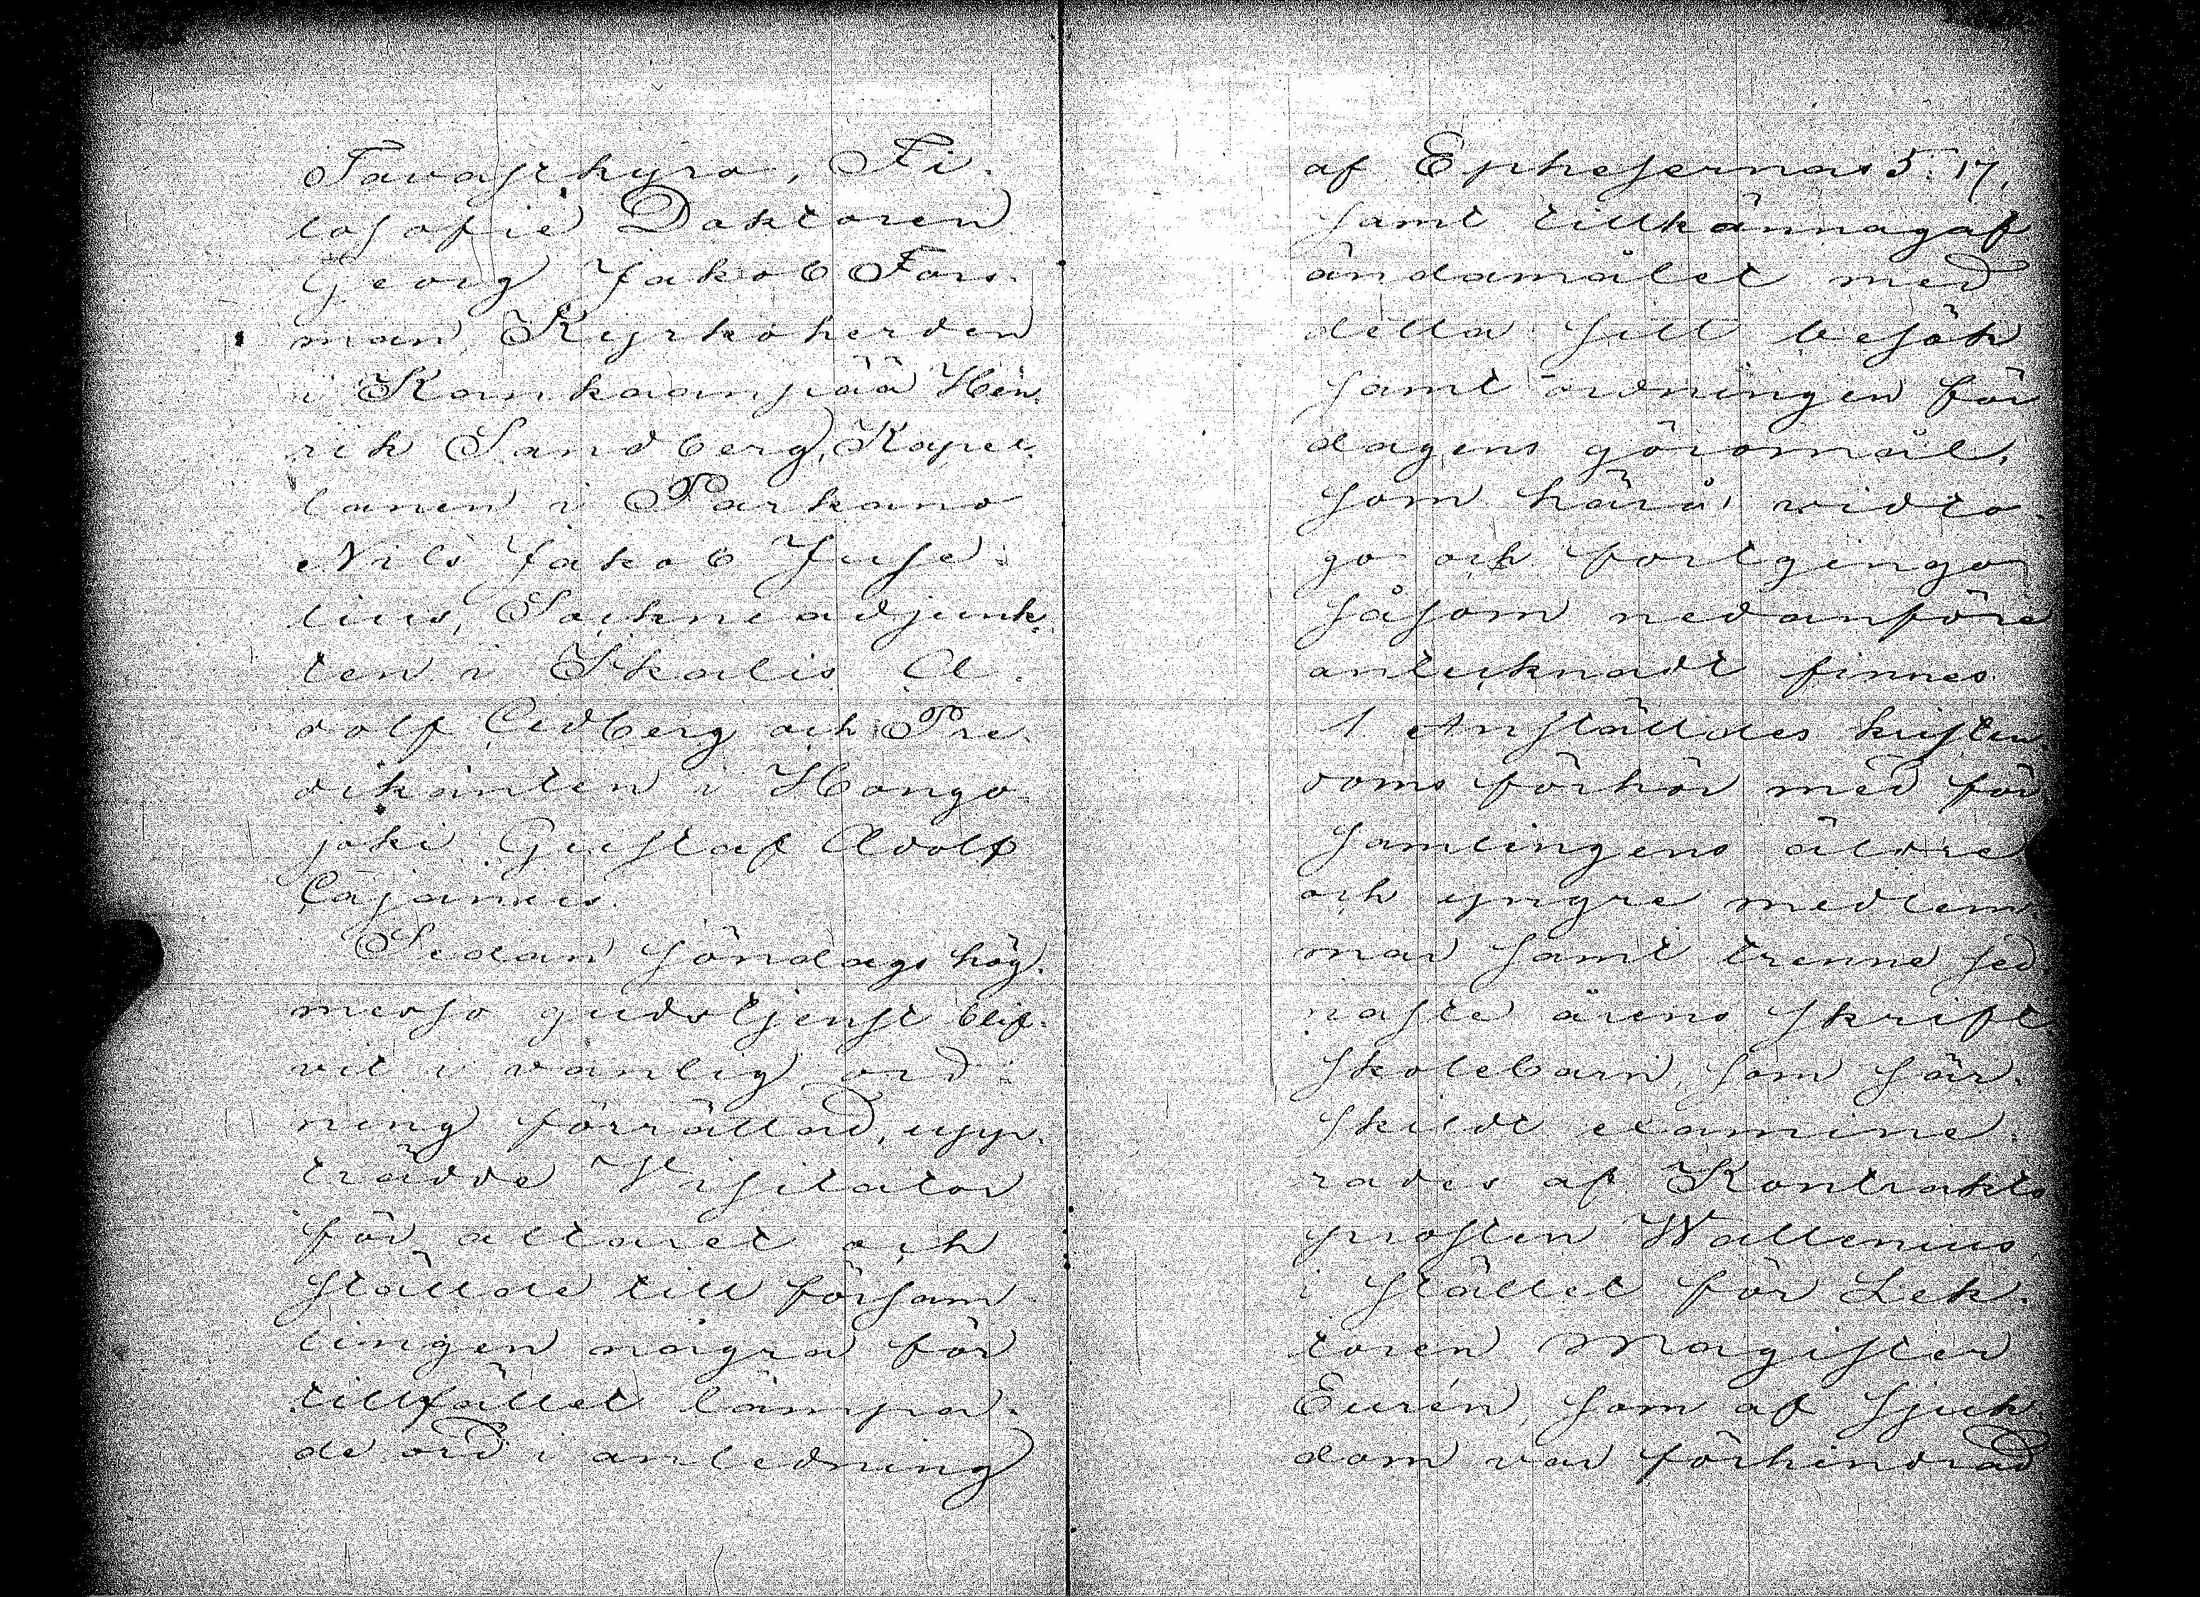 Tavastkyro, Fi-
losofie Doktoren
Georg Jakob Fors-
man, Kyrkoherden
i Kankaanpää Hen-
rik Sandberg, Kapel-
lanen i Parkano
Nils Jakob Juse-
lius, Sockneadjunk-
ten i Ikalis A-
dolf Cedberg och Pre-
dikanten i Hongo-
joki Gustaf Adolf
Cajanus.
Sedan söndags hög-
messo gudstjenst blif-
vit i vanlig ord-
ning förrättad, upp-
trädde Visitator
för altaret och
stälde till försam-
lingen några för
tillfället lämpa-
de ord i anledning
af Ephesernas 5: 17,
samt tillkännagaf
ändamålet med
detta sitt besök
samt ordningen för
dagens göromål,
som härå vidto-
go och fortgingo
såsom nedanföre
antecknadt finnes.
1 Anställdes kristen-
doms förhör med för-
samlingens äldre
och yngre medlem-
mar samt trenne sed-
naste årens skrift-
skolebarn, som sär-
skildt examine-
rades af Kontrakts
prosten Wallenius
i stället för Lek-
toren Magister
Eurén, som af sjuk-
dom var förhindrad